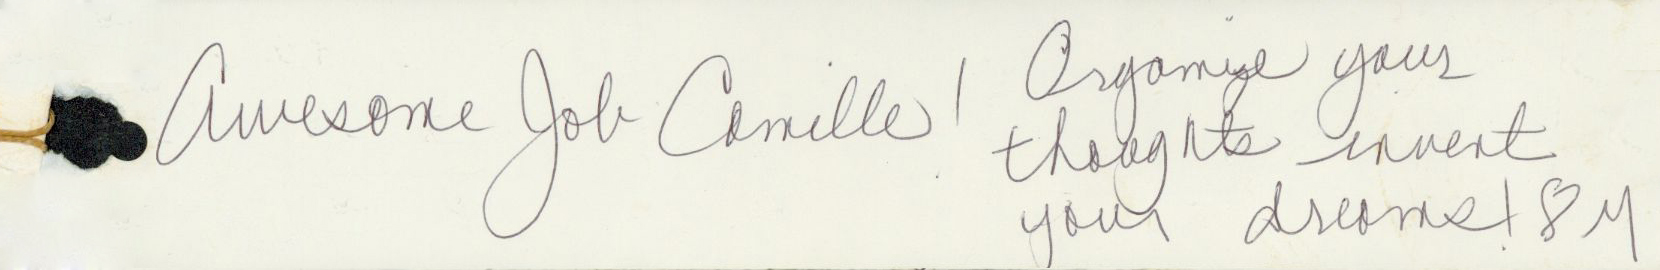 Awesome Job Camille!
Organize your
thoughts invent
your dreams! ♡ M